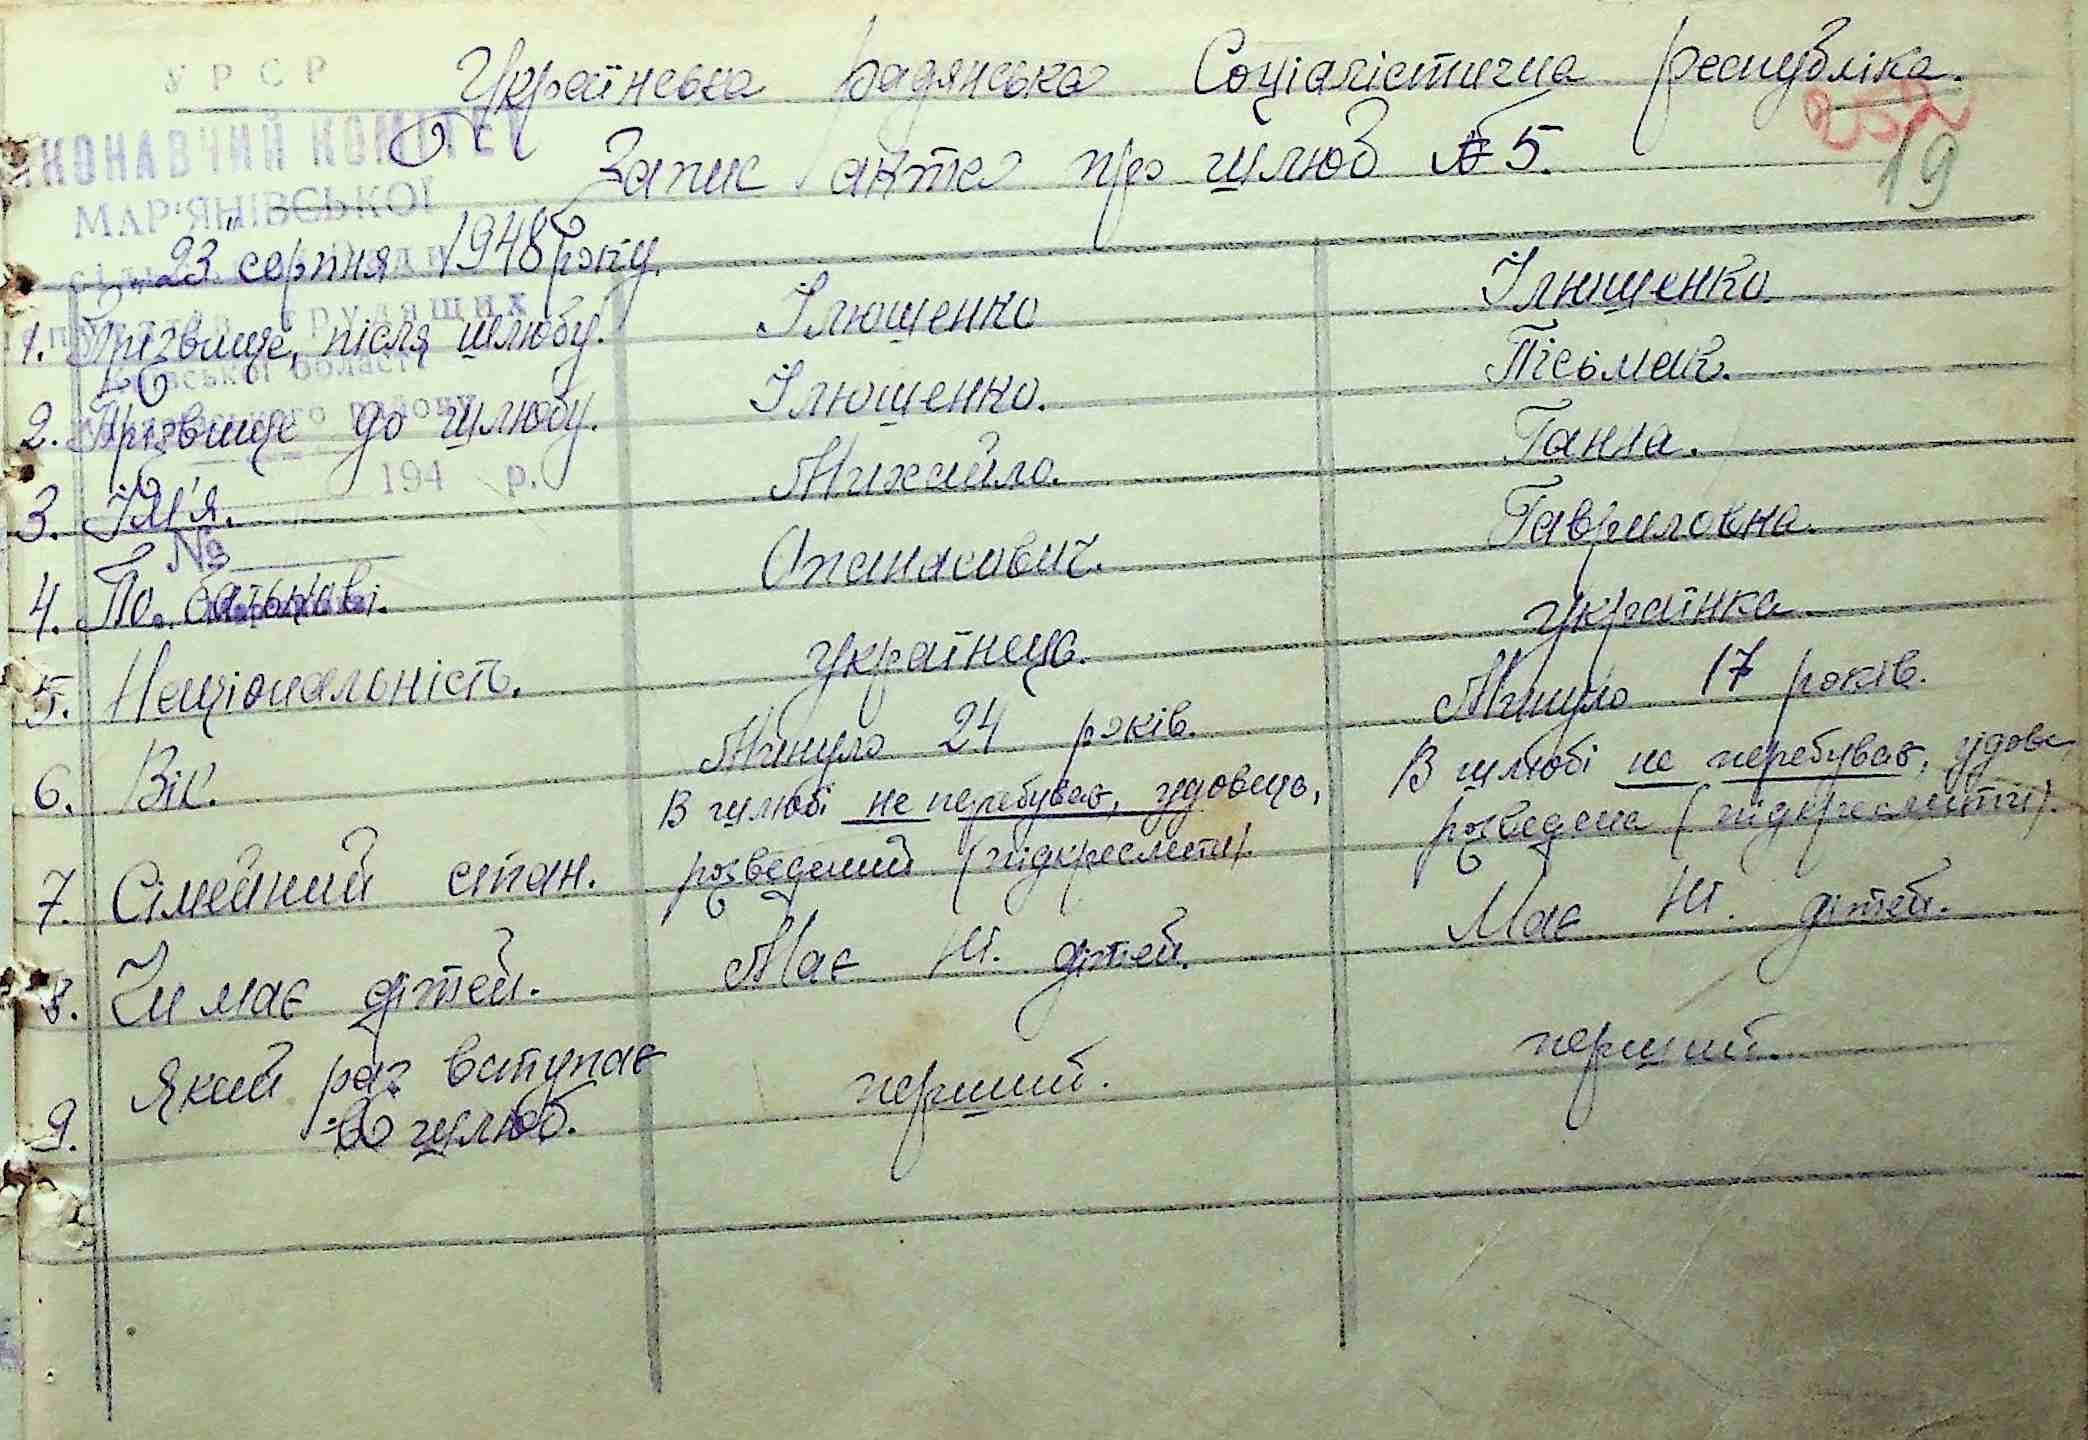 УРСР
Українська радянська Соціалістична республіка.
КОНАВЧИЙ КОМІТЕТ
252
Запис акта про шлюб № 5.
19
МАР'ЯНІВСЬКОЇ
"23" серпня 1948 року.
трудящих
1. Прізвище, після шлюбу. Ілющенко Ілющенко
ської області
2. Прізвище до шлюбу. Ілющенко. Письмак.
194 р.
3. Ім'я. Михайло. Ганна.
№
4. По батькові. Опанасович. Гавриловна.
5. Національність. українець. українка
6. Вік. Минуло 24 років. Минуло 17 років.
7. Сімейний стан. В шлюбі не перебував, удовець, В шлюбі не перебував, удова
розведений (підкреслити). розведена (підкреслити).
8. Чи має дітей. Має ні. дітей. Має ні. дітей.
9. Який раз вступає перший. перший.
в шлюб.